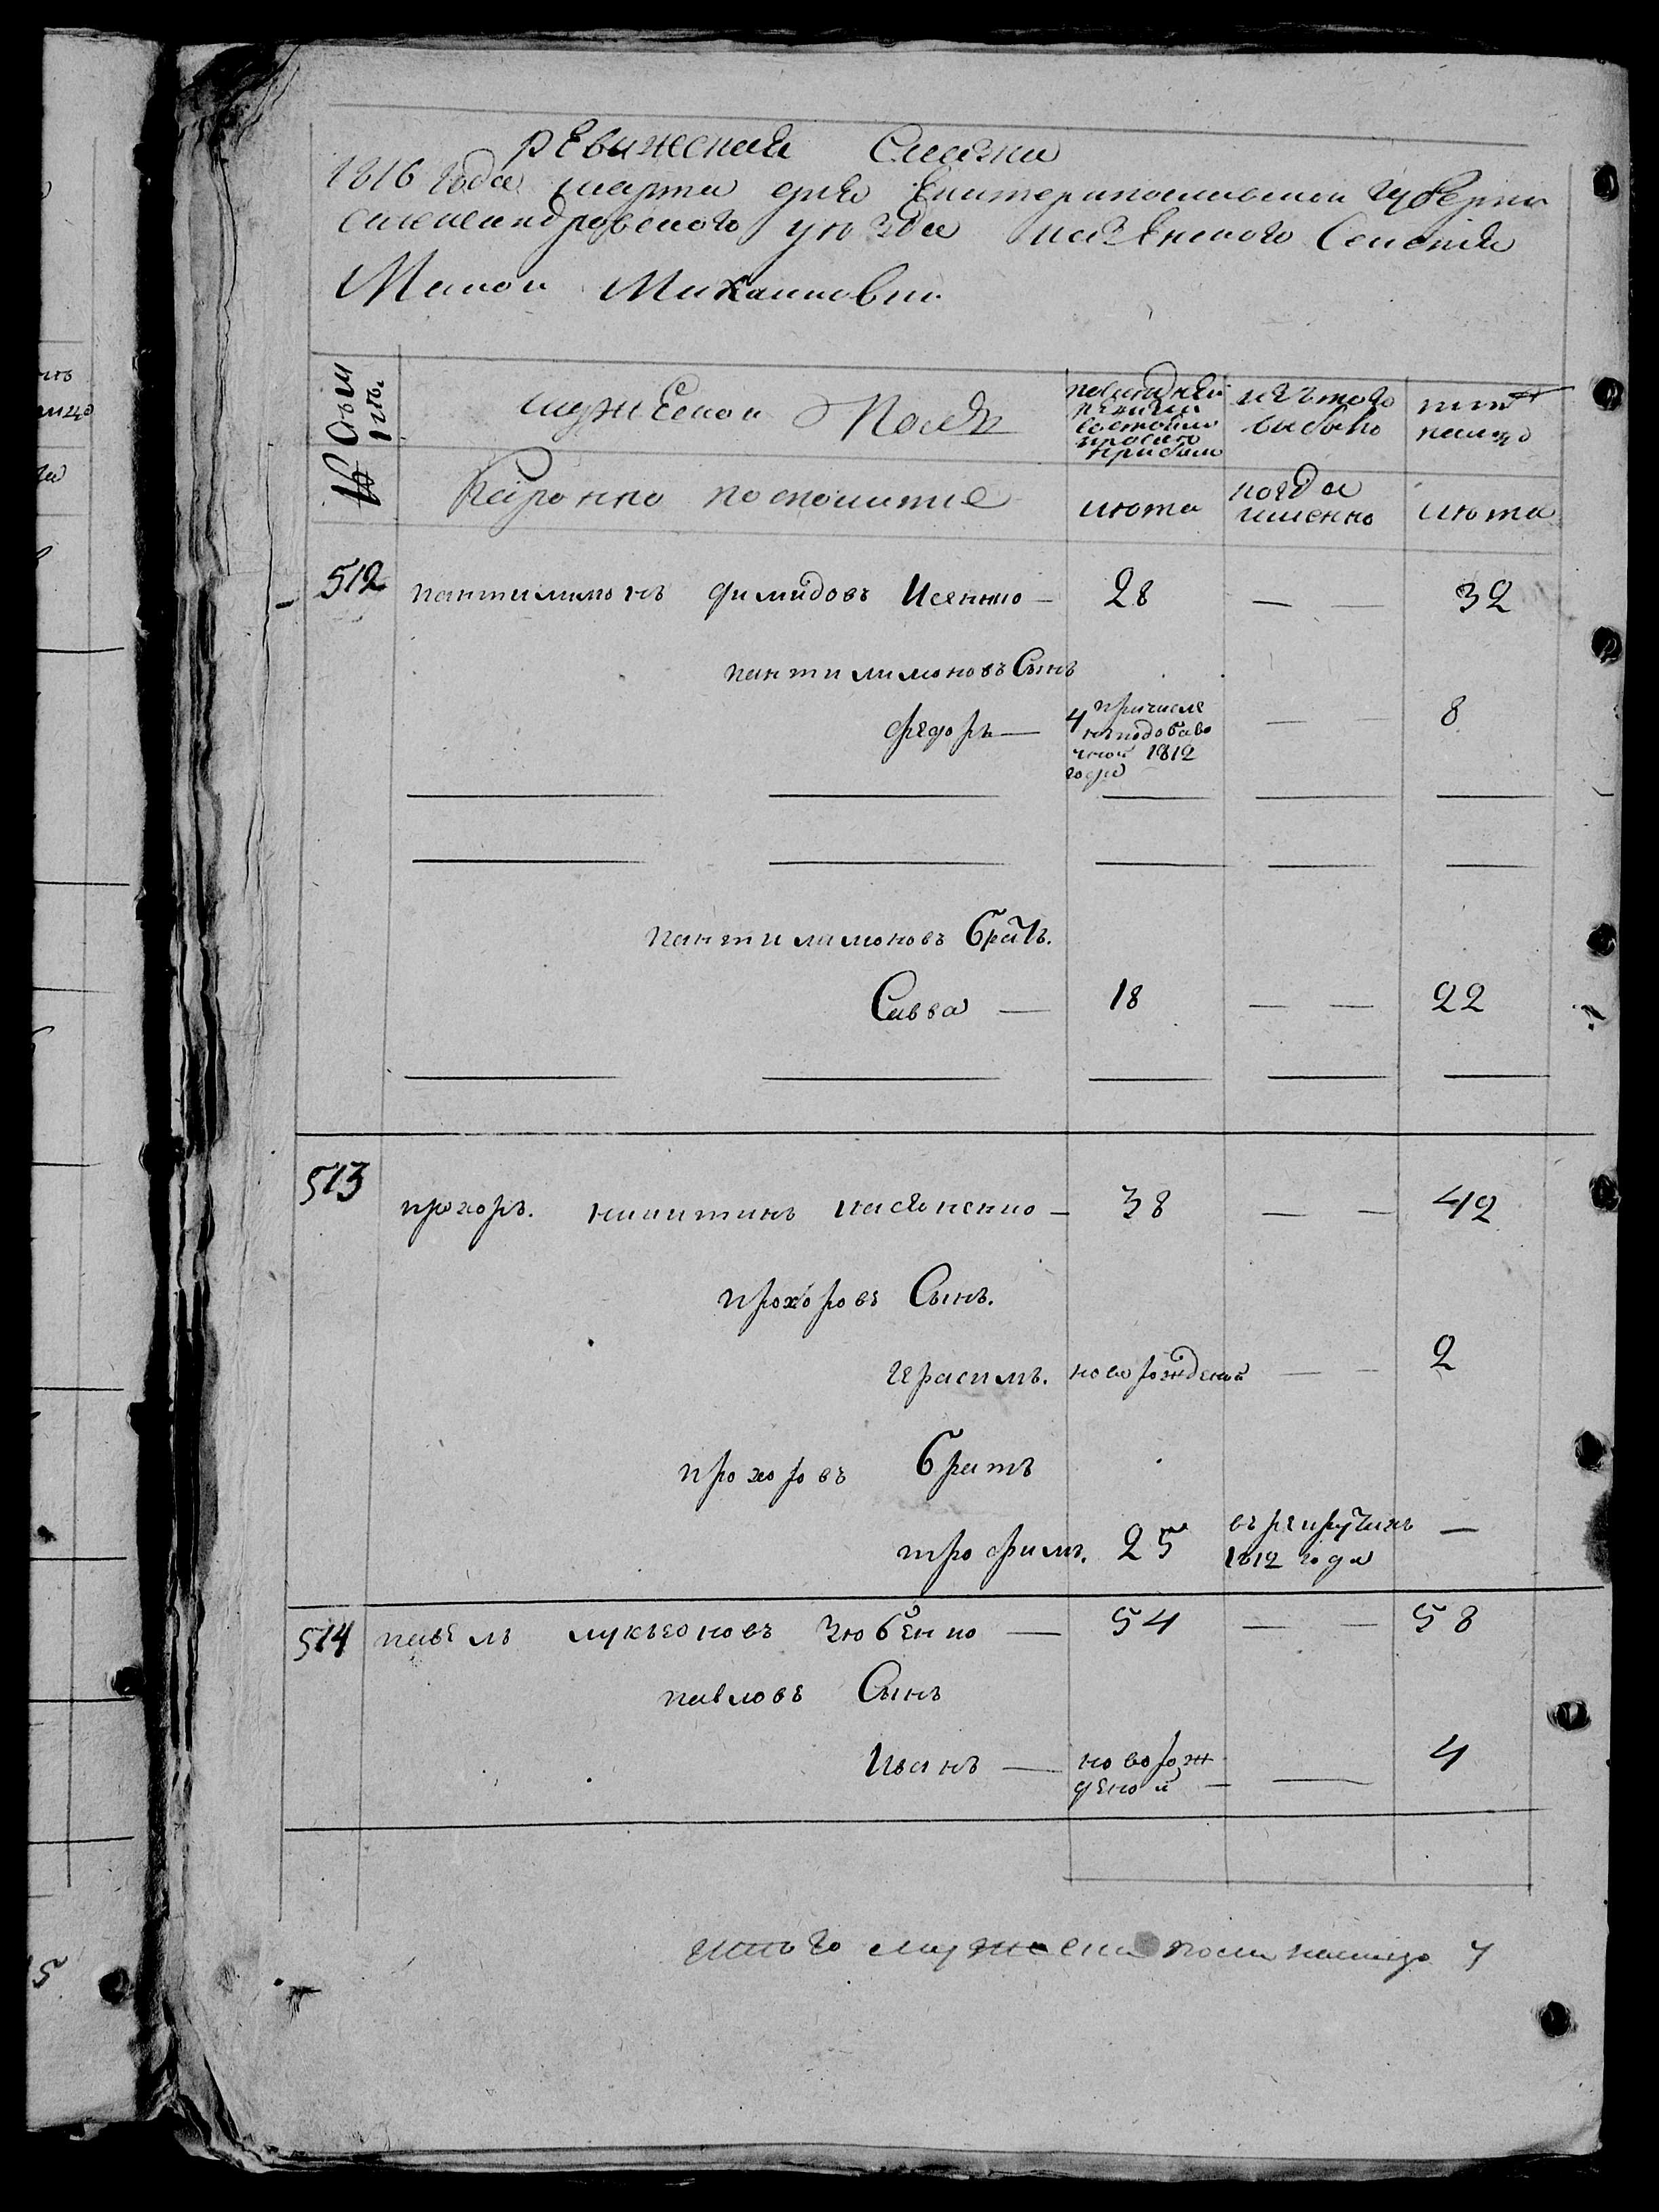 ревижская Сказка
1816 года марта дня Екатеринославской губернии
александровского уезда казенного Селения
Малой Михаиловки
№ Сем
мужеской Полъ
по последней
ревизии
состояло
и после
прибыло
изътого
выбыло
ныне
налицо
Коронно посполитые
лета
когда
именно
лета
512 пантилимонъ димидовъ Исенко — 28 — — 32
пантилимоновъ Сынъ
федоръ — 4 причисле
нъ подобаво
чной 1812
года — — 8
пантилимоновъ братъ.
Савва — 18 — — 22
513 прохоръ. никитинъ касяненко — 38 — — 42
прохоровъ Сынъ.
герасимъ. новорожденой — — 2
прохоровъ братъ
трофимъ. 25 въ рекрутахъ
1812 года —
514 павелъ лукьяновъ Зюбенко — 54 — — 58
павловъ Сынъ
Иванъ — новорож
деной — — 4
итого мужеска пола налицо 7
5